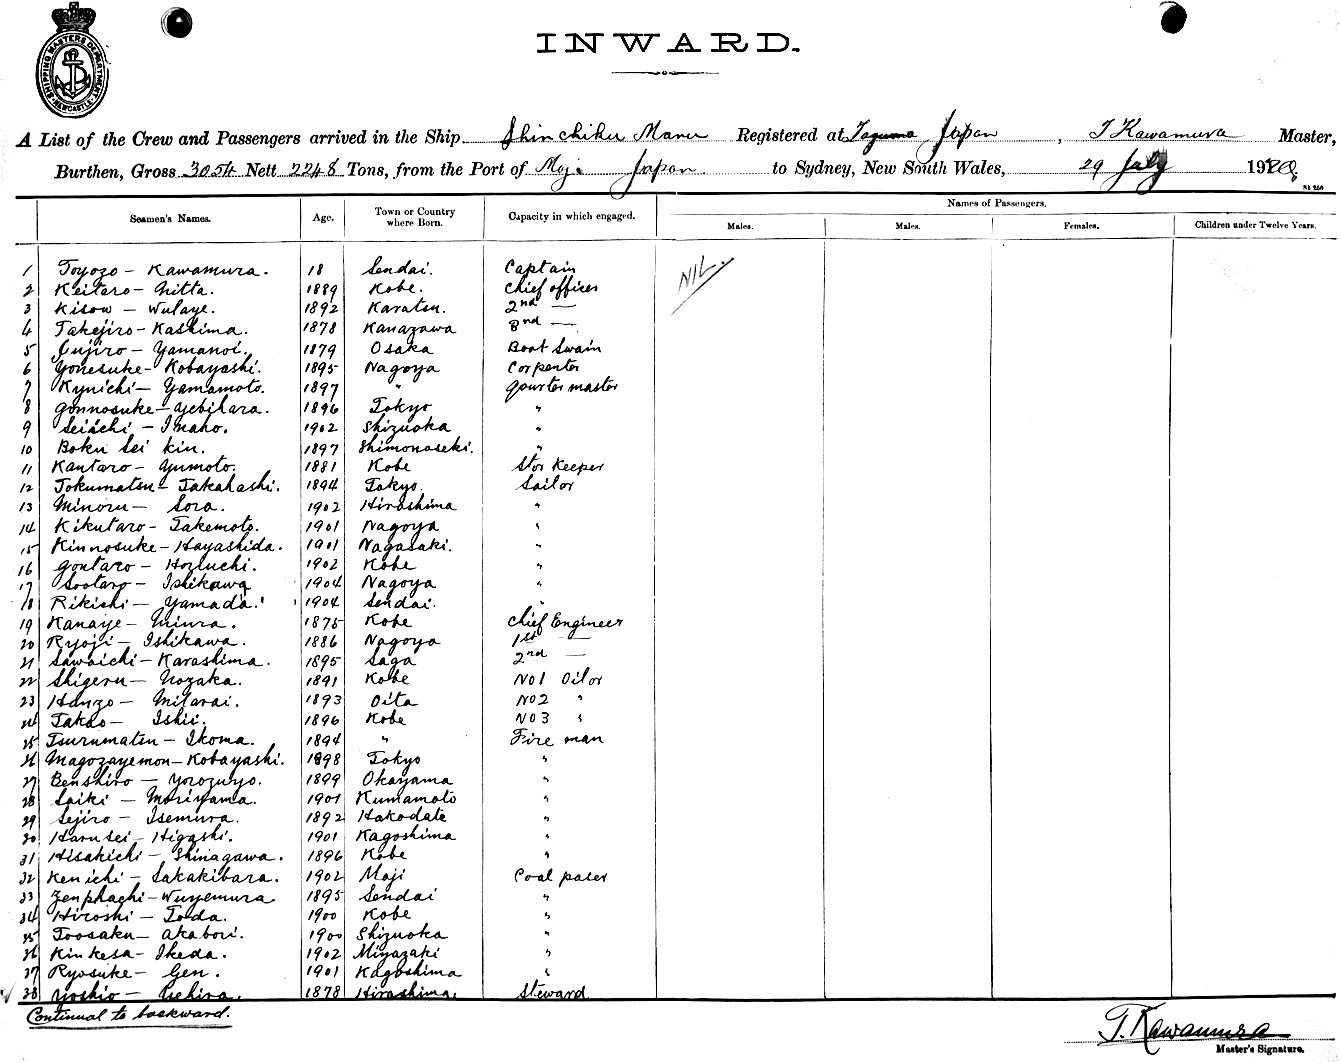 SHIPPING MASTERS DEPARTMENT NEWCASTLE
INWARD.
A List of the Crew and Passengers arrived in the Ship Shinchiku Maru Registered at Japan, T Kawamura Master,
Burthen, Gross 3054 Nett 2248 Tons, from the Port of Moji Japan to Sydney, New South Wales, 29 July 192
Seamen's Names. Age. Town or Country where Born. Capacity in which engaged. Names of Passengers.
Males. Males. Females. Children under Twelve Years.
NIL.
1 Toyozo - Kawamura. 18 Sendai. Captain
2 Keitaro - Nitta. 1889 Kobe. Chief officer
3 Kisow - Wulaye. 1892 Karatsu. 2nd —
4 Takejiro - Kashima. 1878 Kanazawa 3nd —
5 Jujiro - Yamanoi. 1879 Osaka Boat Swain
6 Yonesuke - Kobayashi. 1895 Nagoya Corpenter
7 Kyuichi - Yamamoto. 1897 " Qourter master
8 Gonnosuke - Yebihara. 1896 Tokyo "
9 Seiichi - Imaho. 1902 Shizuoka "
10 Boku Sei Kin. 1897 Shimonoseki. "
11 Kantaro - Yumoto. 1881 Kobe Stor Keeper
12 Tokumatsu - Takahashi. 1894 Tokyo. Sailor
13 Minoru - Sora. 1902 Hiroshima "
14 Kikutaro - Takemoto. 1901 Nagoya "
15 Kinnosuke - Hayashida. 1901 Nagasaki. "
16 Gontaro - Horiuchi. 1902 Kobe "
17 Sootaro - Ishikawa 1904 Nagoya "
18 Rikichi - Yamada. 1904 Sendai. "
19 Kanaye - Miura. 1875 Kobe Chief Engineer
20 Ryoji - Ishikawa. 1886 Nagoya 1st —
21 Sawaichi - Karashima. 1895 Saga 2nd —
22 Shigeru - Nozaka. 1891 Kobe No1 Oilor
23 Hanzo - Mitarai. 1893 Oita No2 "
24 Takao - Ishii. 1896 Kobe No3 "
25 Tsurumatsu - Ikoma. 1894 " Fire man
26 Magozayemon - Kobayashi. 1898 Tokyo "
27 Benshiro - Yorozuyo. 1899 Okayama "
28 Saiki - Moriyama. 1901 Kumamoto "
29 Sejiro - Isemura. 1892 Hakodate "
30 Harusei - Higashi. 1901 Kagoshima "
31 Hisakichi - Shinagawa. 1896 Kobe "
32 Kenichi - Sakakibara. 1902 Moji Coal paser
33 Zenphachi - Wuyemura 1895 Sendai "
34 Hiroshi - Toda. 1900 Kobe "
35 Toosaku - Akabori. 1900 Shizuoka "
36 Kinkesa - Ikeda. 1902 Miyazaki "
37 Ryosuke - Gen. 1901 Kagoshima "
38 Yoshio - 1878 Hiroshima. Steward
Continual to backward.
T. Kawamura
Master's Signature.